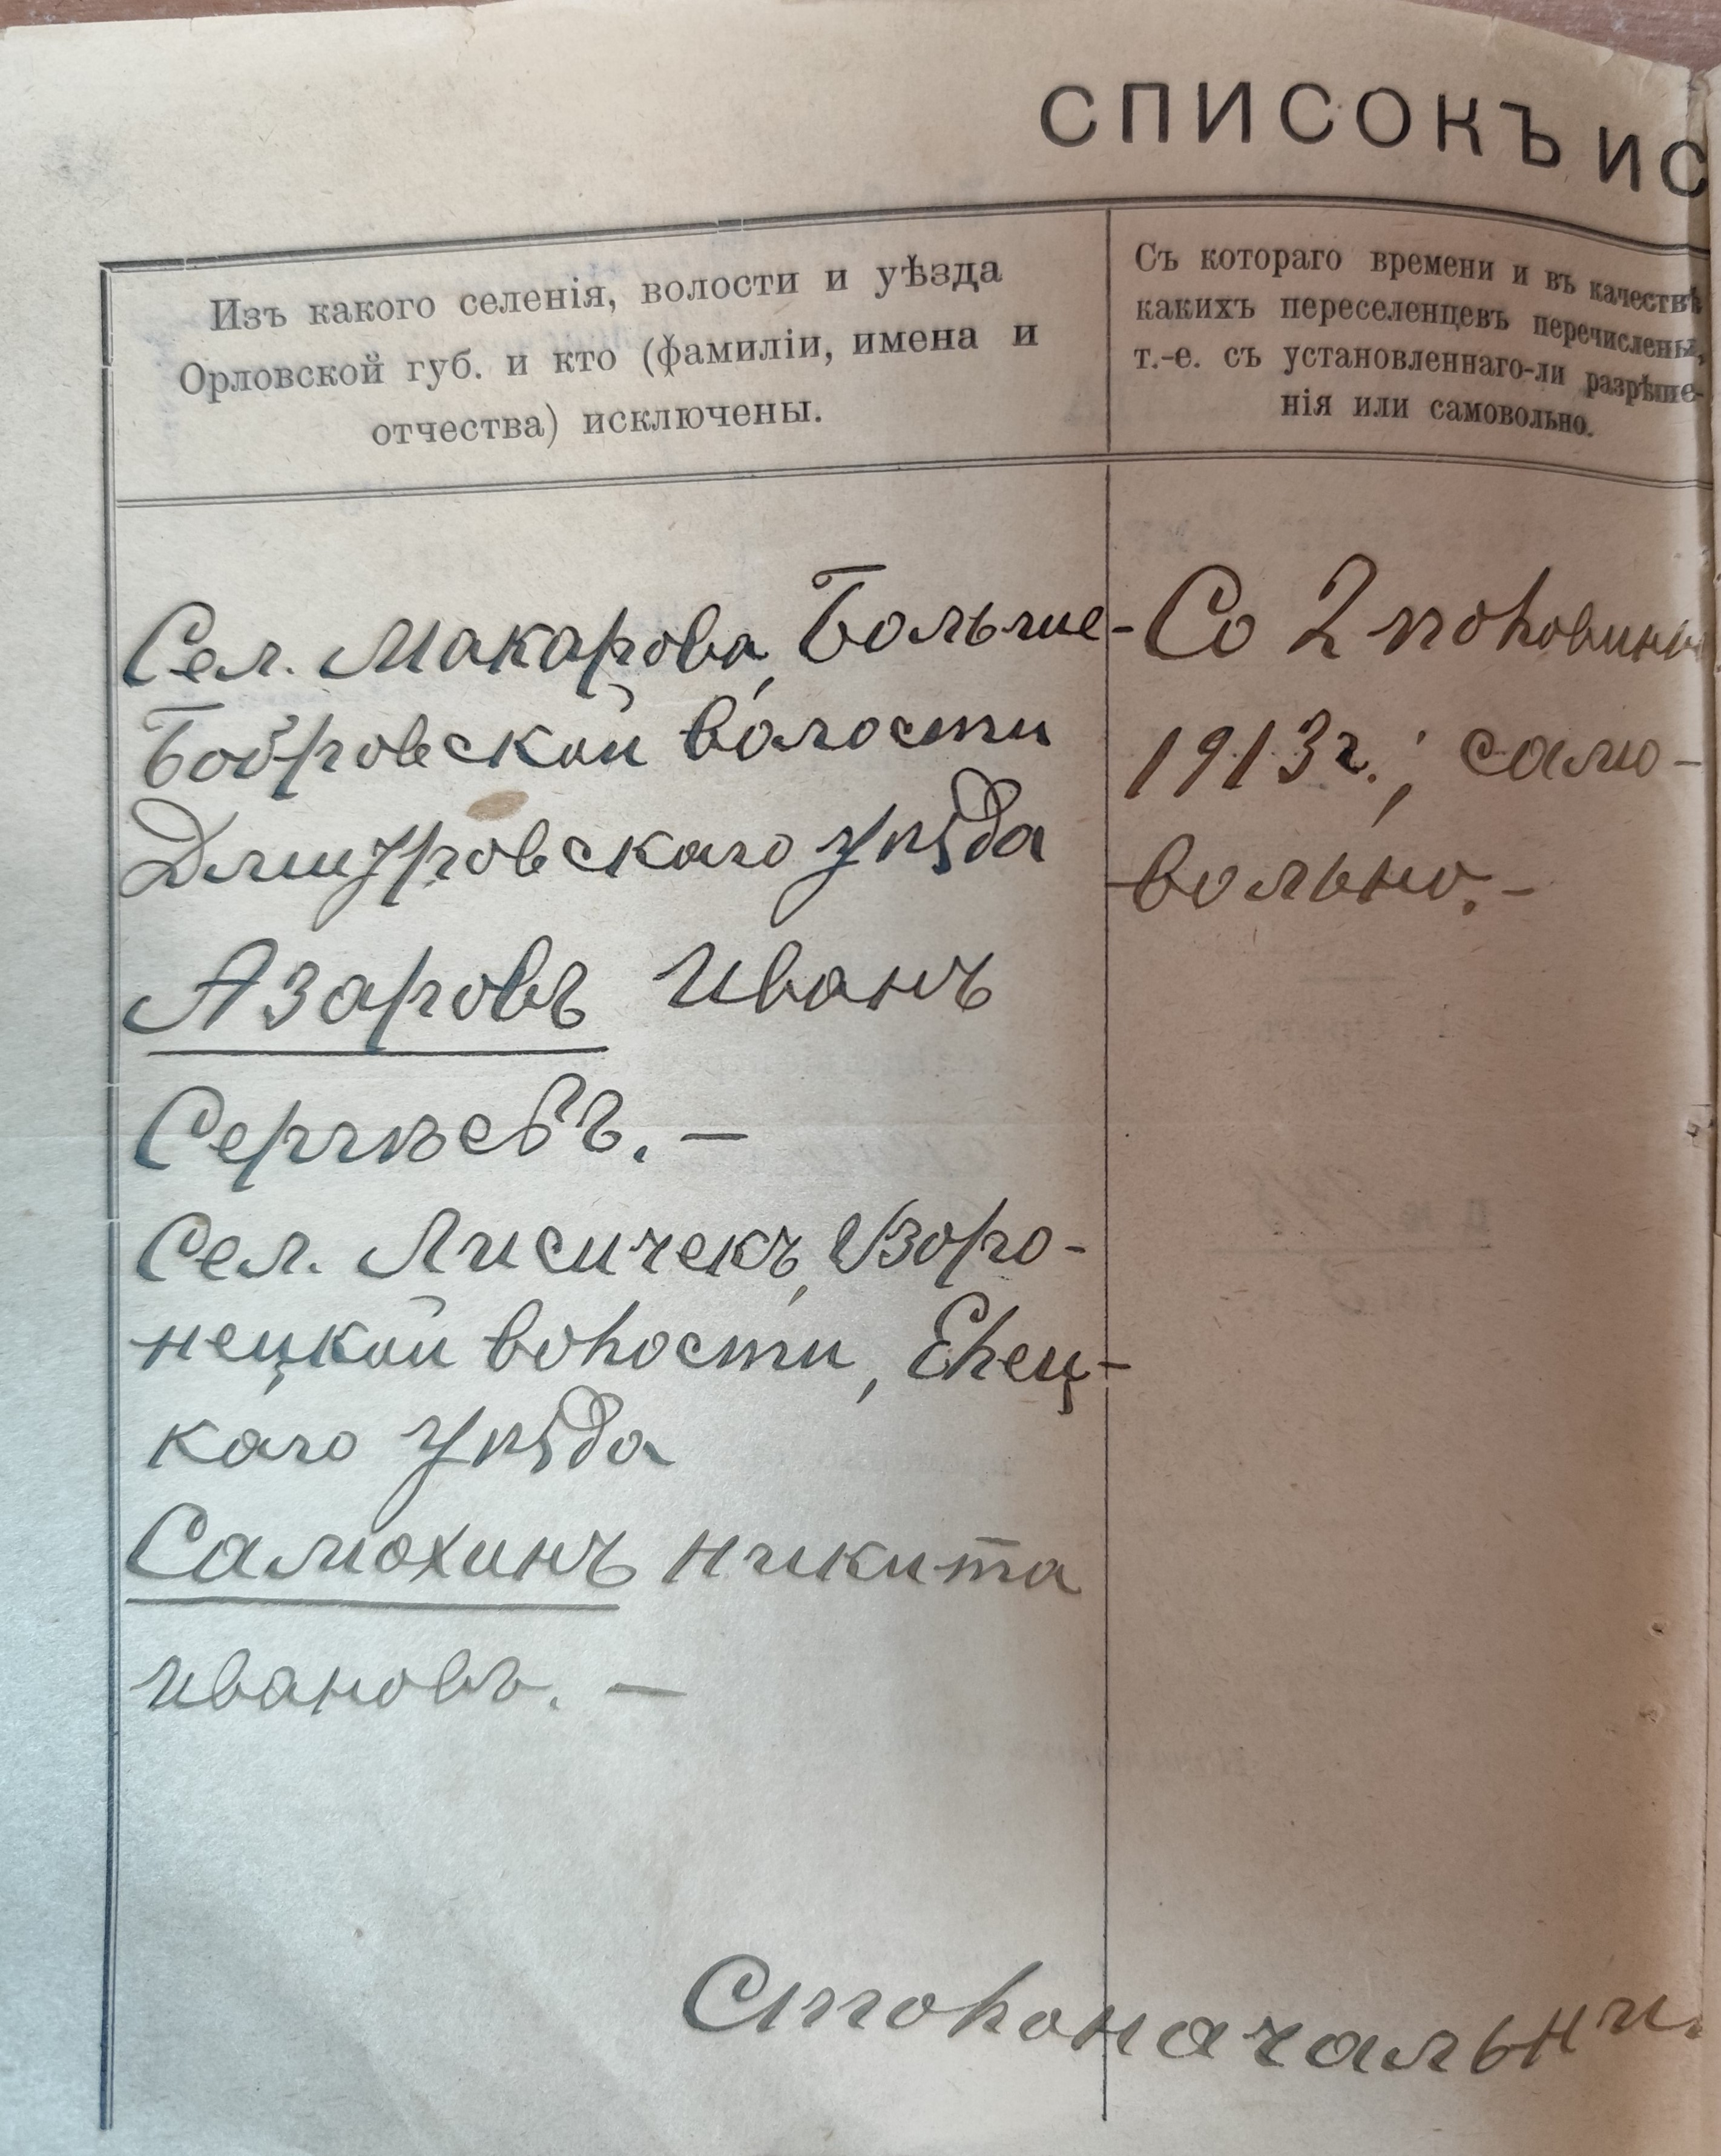 СПИСОКЪ ИС
Изъ какого селенія, волости и уѣзда
Орловской губ. и кто (фамиліи, имена и
отчества) исключены.
Съ котораго времени и въ качествѣ
какихъ переселенцевъ перечислены,
т.-е. съ установленнаго-ли разрѣше-
нія или самовольно.
Сел. Макарова, Больше-
Бобровской волости
Дмитровскаго уѣзда
Азаровъ Иванъ
Сергѣевъ. —
Сел. Лисичекъ, Изоро-
нецкой волости, Елец-
каго уѣзда
Самохинъ Никита
Ивановъ. —
Со 2 половины
1913 г.; само-
вольно. —
Столоначальни